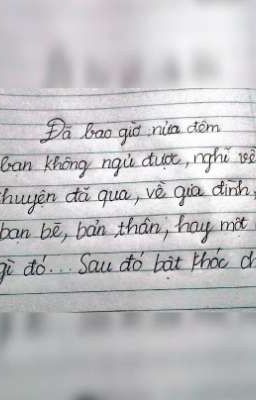 Đã bao giờ nửa đêm
bạn không ngủ được, nghĩ về
chuyện đã qua, về gia đình,
bạn bè, bản thân, hay một
gì đó... Sau đó bật khóc